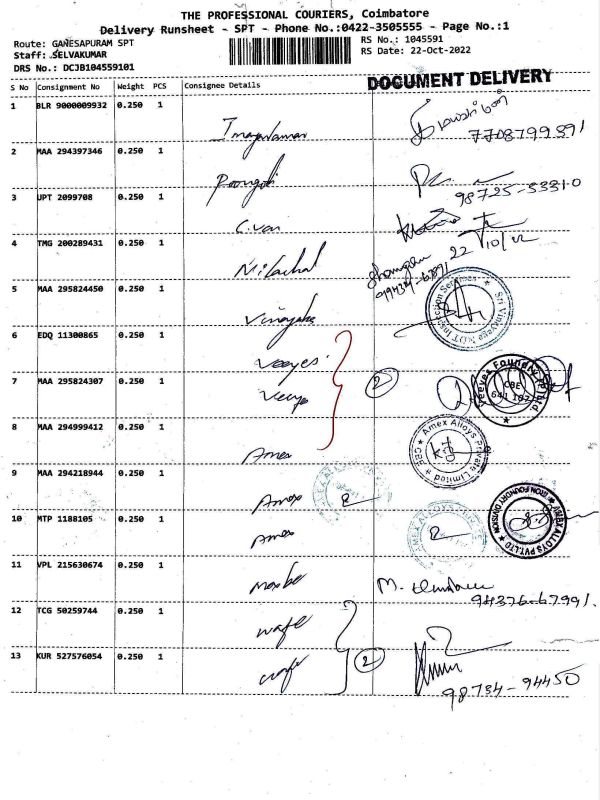 THE PROFESSIONAL COURIERS, Coimbatore
Delivery Runsheet - SPT - Phone No.:0422-3505555 - Page No.:1
Route: GANESAPURAM SPT
RS No.: 1045591
Staff: SELVAKUMAR
RS Date: 22-Oct-2022
DRS No.: DCJB104559101
DOCUMENT DELIVERY
S No Consignment No Weight PCS Consignee Details
1 BLR 9000009932 0.250 1
7708799391
2 MAA 294397346 0.250 1
98725-33310
3 UPT 2099708 0.250 1
C.van
4 TMG 200289431 0.250 1
22/10/22
5 MAA 295824450 0.250 1
Vinayaka
Sri Vinayaga NDT Inspection Services
6 EDQ 11300865 0.250 1
Veeyes
7 MAA 295824307 0.250 1
2
Veeyes Foundry (P) Ltd.
CBE
641 107
8 MAA 294999412 0.250 1
Amex
Amex Alloys Private Limited
CBE
9 MAA 294218944 0.250 1
Amex
10 MTP 1188105 0.250 1
Amex
AMEX ALLOYS PVT. LTD
IRON FOUNDRY DIVISION
11 VPL 215630674 0.250 1
94376-67991.
12 TCG 50259744 0.250 1
wafe
13 KUR 527576054 0.250 1
wafe
2
98734-94450